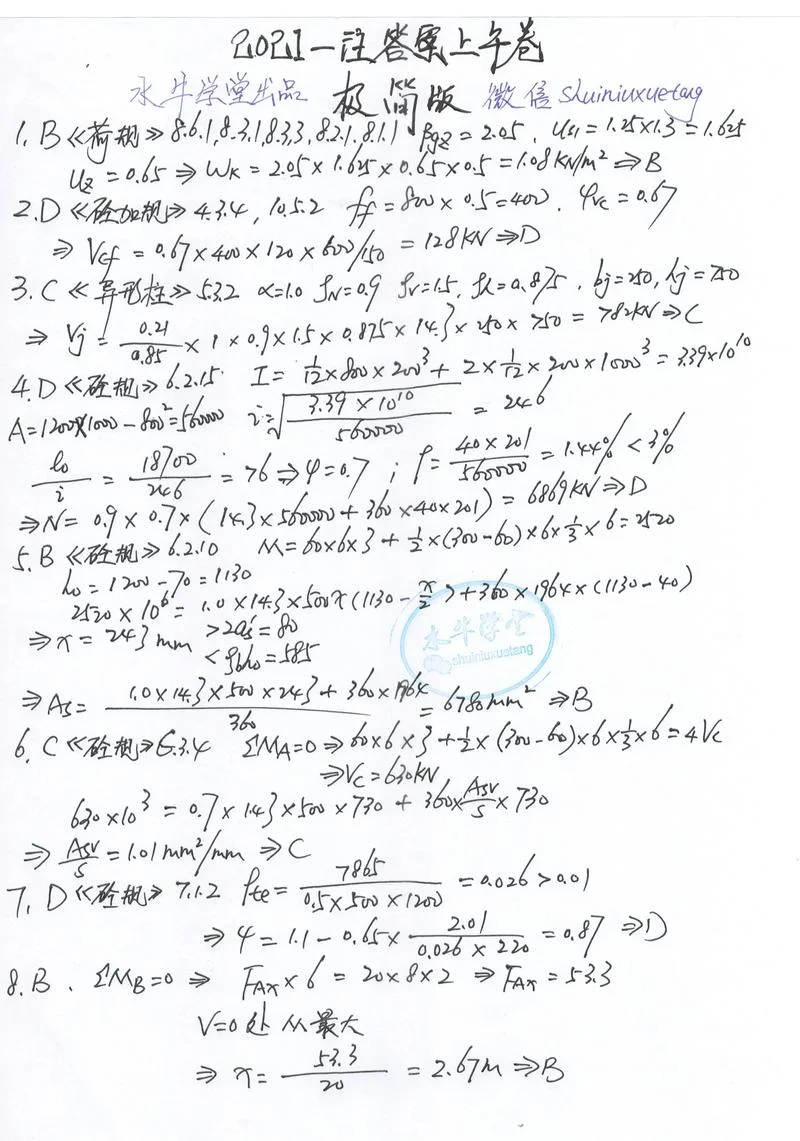 2021一注答案上午卷
水牛学堂出品 极简版 微信shuiniuxuetang
1. B《荷规》8.6.1,8.3.1,8.3.3,8.2.1,8.1.1 βgz=2.05, us1=1.25×1.3=1.625
uz=0.65⇒Wk=2.05×1.625×0.65×0.5=1.08KN/m²⇒B
2. D《砼加规》4.3.4, 10.5.2 ff=800×0.5=400. φvc=0.67
⇒Vcf=0.67×400×120×600/150=128KN⇒D
3. C《异形柱》5.3.2 α=1.0 ζN=0.9 ζv=1.5, ζh=0.875, bj=250, hj=750
⇒Vj=0.21/0.85×1×0.9×1.5×0.875×14.3×250×750=782KN⇒C
4. D《砼规》6.2.15 I=1/12×800×200³+2×1/12×200×1000³=3.39×10¹⁰
A=1200×1000-800²=560000 i=√(3.39×10¹⁰/560000)=246
l0/i=18700/246=76⇒φ=0.7; ρ=40×201/560000=1.44%<3%
⇒N=0.9×0.7×(14.3×560000+360×40×201)=6869KN⇒D
5. B《砼规》6.2.10 M=60×6×3+1/2×(300-60)×6×1/3×6=2520
h0=1200-70=1130
2520×10⁶=1.0×14.3×500x(1130-x/2)+360×1964×(1130-40)
⇒x=243mm >2as'=80
<ξbh0=585
水牛学堂
shuiniuxuetang
⇒As=(1.0×14.3×500×243+360×1964)/360=6780mm²⇒B
6. C《砼规》6.3.4 ΣMA=0⇒60×6×3+1/2×(300-60)×6×1/3×6=4Vc
⇒Vc=630KN
630×10³=0.7×1.43×500×730+360×Asv/s×730
⇒Asv/s=1.01mm²/mm⇒C
7. D《砼规》7.1.2 ρte=7865/(0.5×500×1200)=0.026>0.01
⇒ψ=1.1-0.65×2.01/(0.026×220)=0.87⇒D
8. B. ΣMB=0⇒FAx×6=20×8×2⇒FAx=53.3
V=0处M最大
⇒x=53.3/20=2.67m⇒B